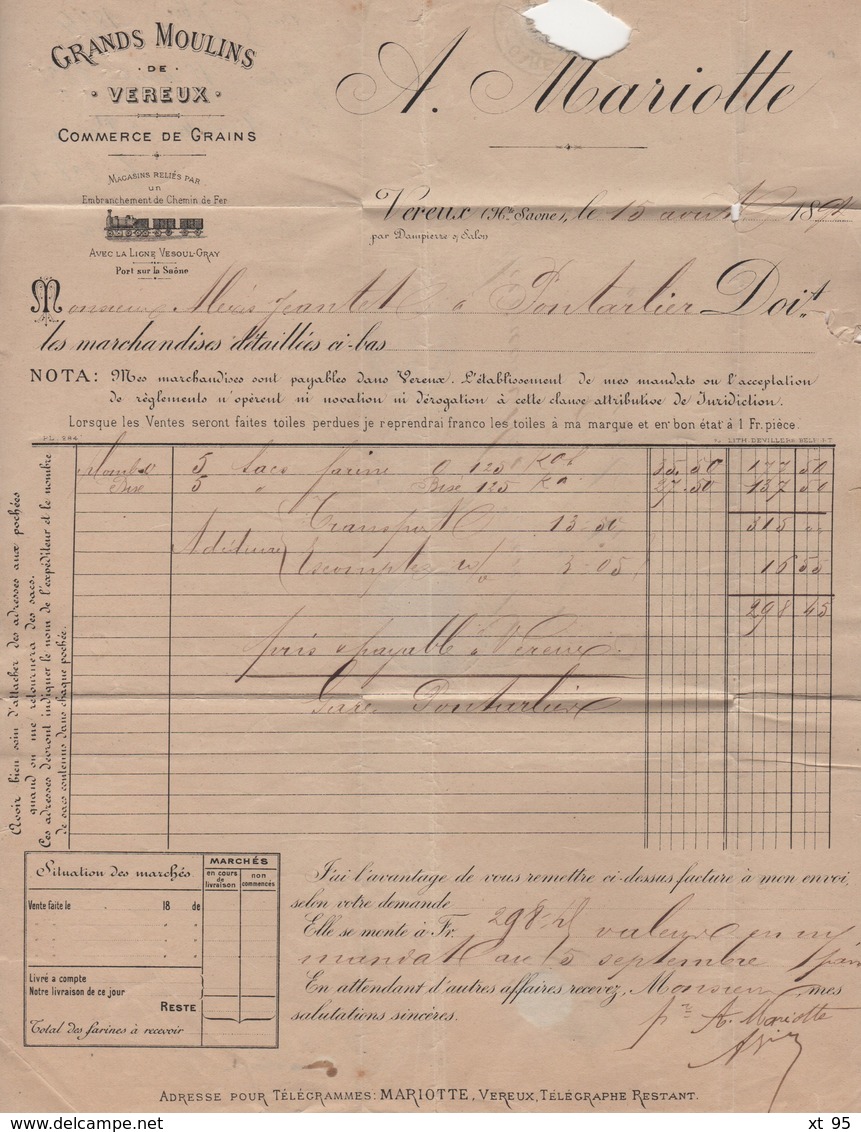 GRANDS MOULINS
· DE ·
· VEREUX ·
COMMERCE DE GRAINS
MAGASINS RELIÉS PAR
un
Embranchement de Chemin de Fer
AVEC LA LIGNE VESOUL-GRAY
Port sur la Saône
A. Mariotte
Vereux (Hte Saône), le 15 août 189
par Dampierre s/ Salon
Monsieur jeantet à Pontarlier Doit
les marchandises détaillées ci-bas
NOTA: Mes marchandises sont payables dans Vereux. L'établissement de mes mandats ou l'acceptation
de règlements n'opèrent ni novation ni dérogation à cette clause attributive de Juridiction.
Lorsque les Ventes seront faites toiles perdues je reprendrai franco les toiles à ma marque et en bon état à 1 Fr. pièce.
LITH. DEVILLERS BELFORT
Avoir bien soin d'attacher des adresses aux pochées
quand on me retournera des sacs.
Ces adresses devront indiquer le nom de l'expéditeur et le nombre
de sacs contenus dans chaque pochée.
5 Sacs farine 0 125 35.50 177 50
Bise 5 " Bise 125 K 27.50 137 50
Transport 13-50 315
Escompte 3-05 16 55
298 45
pris & payable à Vereux
Gare Pontarlier
Situation des marchés
MARCHÉS
en cours de livraison
non commencés
Vente faite le 18 de
Livré a compte
Notre livraison de ce jour
RESTE
Total des farines à recevoir
J'ai l'avantage de vous remettre ci-dessus facture à mon envoi,
selon votre demande
Elle se monte à Fr. 298.45 valeur en m/
mandat au 15 septembre
En attendant d'autres affaires recevez, Monsieur, mes
salutations sincères.
A. Mariotte
ADRESSE POUR TÉLÉGRAMMES: MARIOTTE, VEREUX, TÉLÉGRAPHE RESTANT.
xt 95